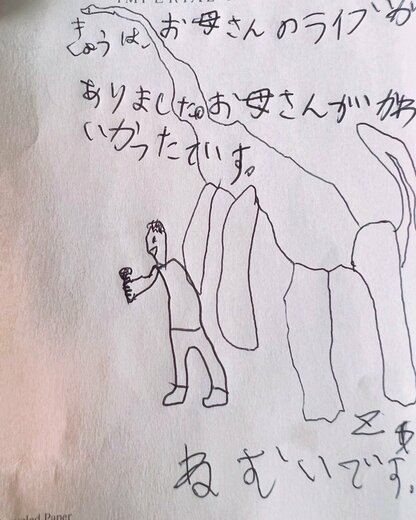 IMPERIAL
きょうは、お母さんのライブが
ありました。お母さんがかわ
いかったです。
とても
ねむいです。
Paper